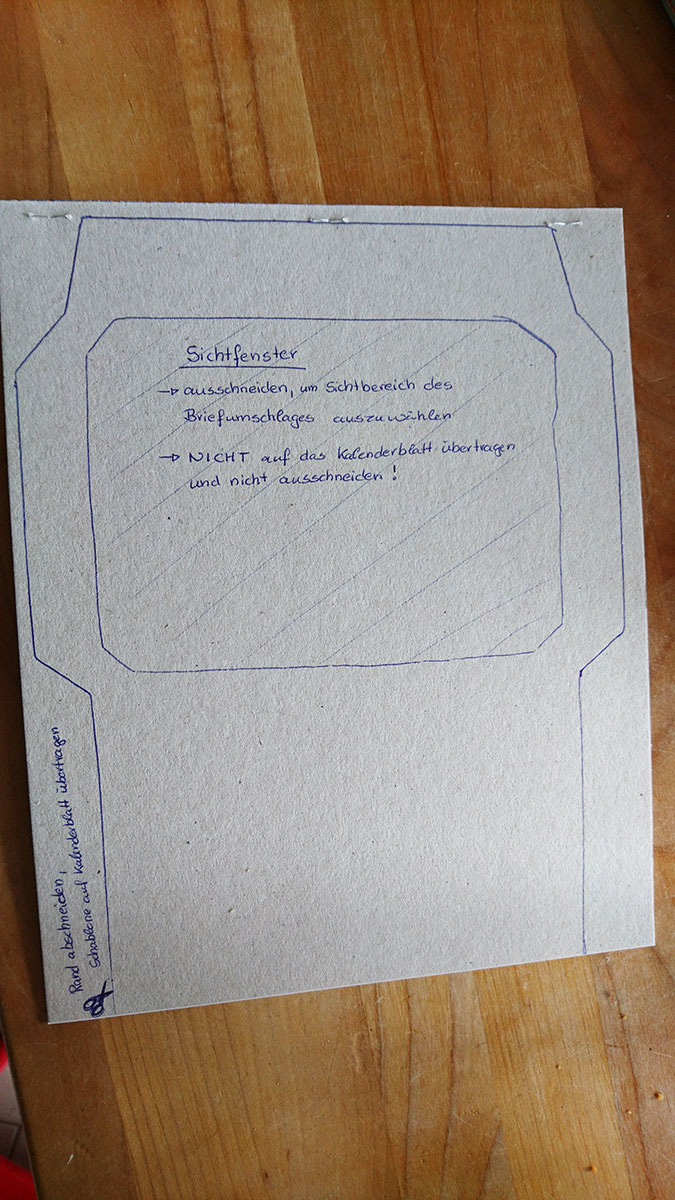 Sichtfenster
→ ausschneiden, um Sichtbereich des
Briefumschlages auszuwählen
→ NICHT auf das Kalenderblatt übertragen
und nicht ausschneiden!
Rand abschneiden,
Schablone auf Kalenderblatt übertragen